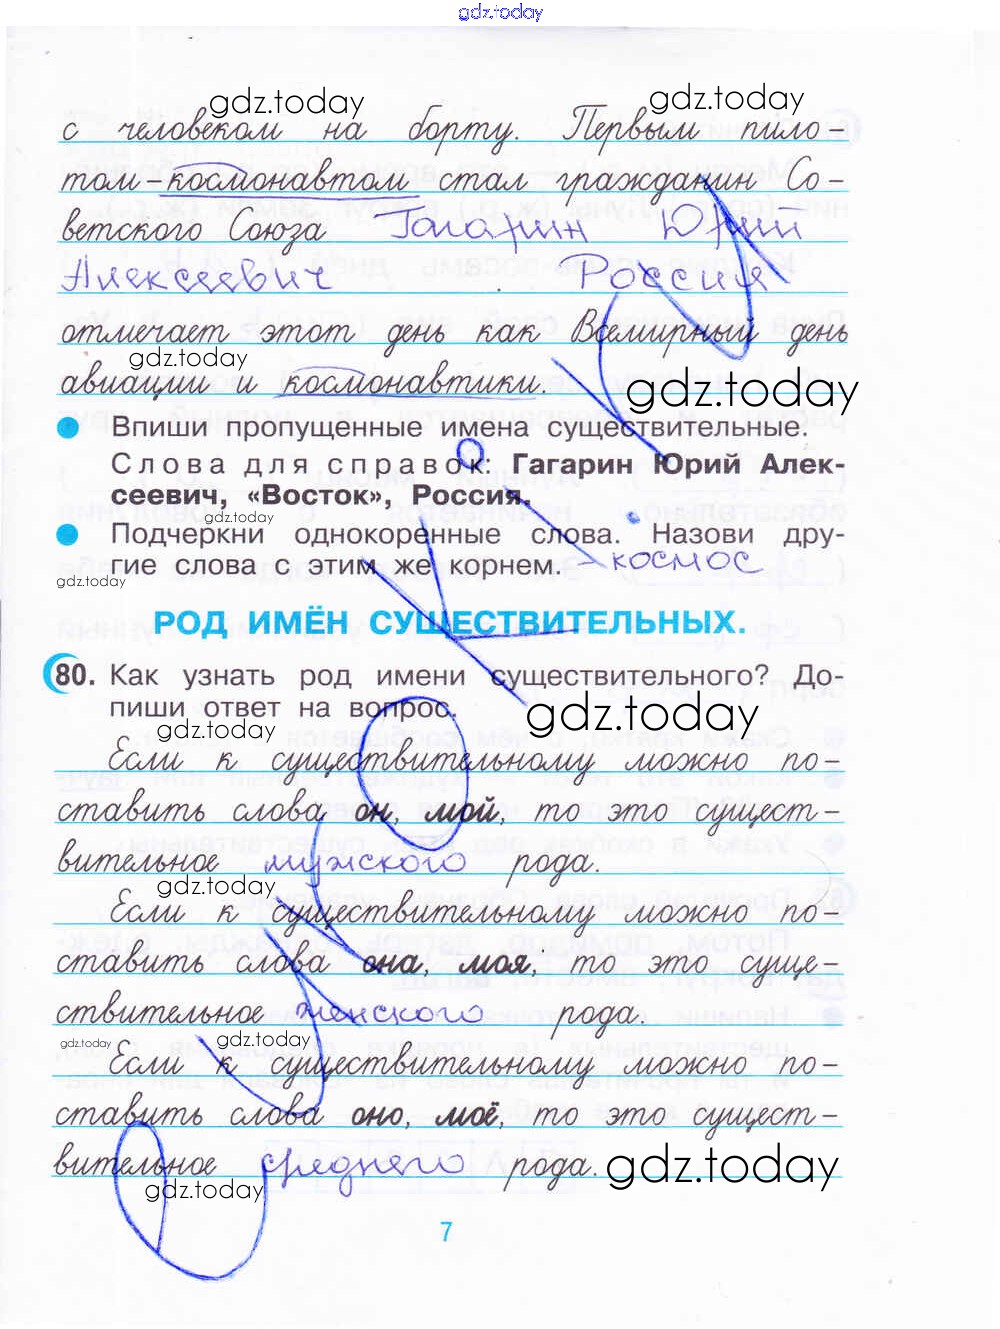 gdz.today
gdz.today gdz.today
с человеком на борту. Первым пило-
том-космонавтом стал гражданин Со-
ветского Союза Гагарин Юрий
Алексеевич. Россия
отмечает этот день как Всемирный день
gdz.today
авиации и космонавтики.
gdz.today
Впиши пропущенные имена существительные.
Слова для справок: Гагарин Юрий Алек-
сеевич, «Восток», Россия.
gdz.today
Подчеркни однокоренные слова. Назови дру-
гие слова с этим же корнем. - космос
gdz.today
РОД ИМЁН СУЩЕСТВИТЕЛЬНЫХ.
80. Как узнать род имени существительного? До-
пиши ответ на вопрос.
gdz.today gdz.today
Если к существительному можно по-
ставить слова он, мой, то это сущест-
вительное мужского рода.
gdz.today
Если к существительному можно по-
ставить слова она, моя, то это суще-
ствительное женского рода.
gdz.today gdz.today
Если к существительному можно по-
ставить слова оно, моё, то это сущест-
вительное среднего рода.
gdz.today gdz.today
7